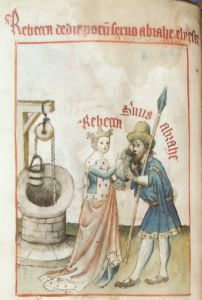 Rebecca dedit potū seruo abrahe elyezer
Rebecca
Suus
abrahe